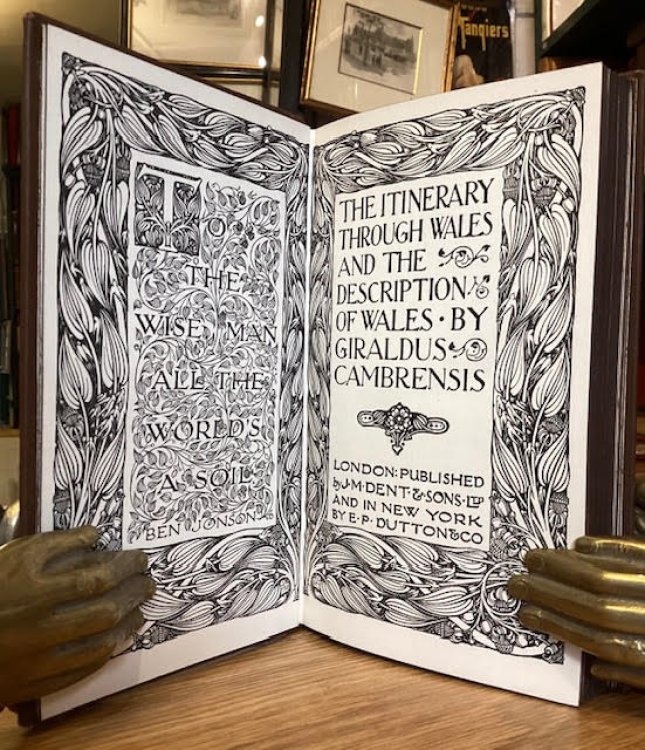 Tangiers
TO
THE
WISE MAN
ALL THE
WORLD'S
A SOIL
BEN JONSON
THE ITINERARY
THROUGH WALES
AND THE
DESCRIPTION
OF WALES · BY
GIRALDUS
CAMBRENSIS
LONDON: PUBLISHED
by J·M·DENT·&·SONS·LTD
AND IN NEW YORK
BY E·P·DUTTON & CO